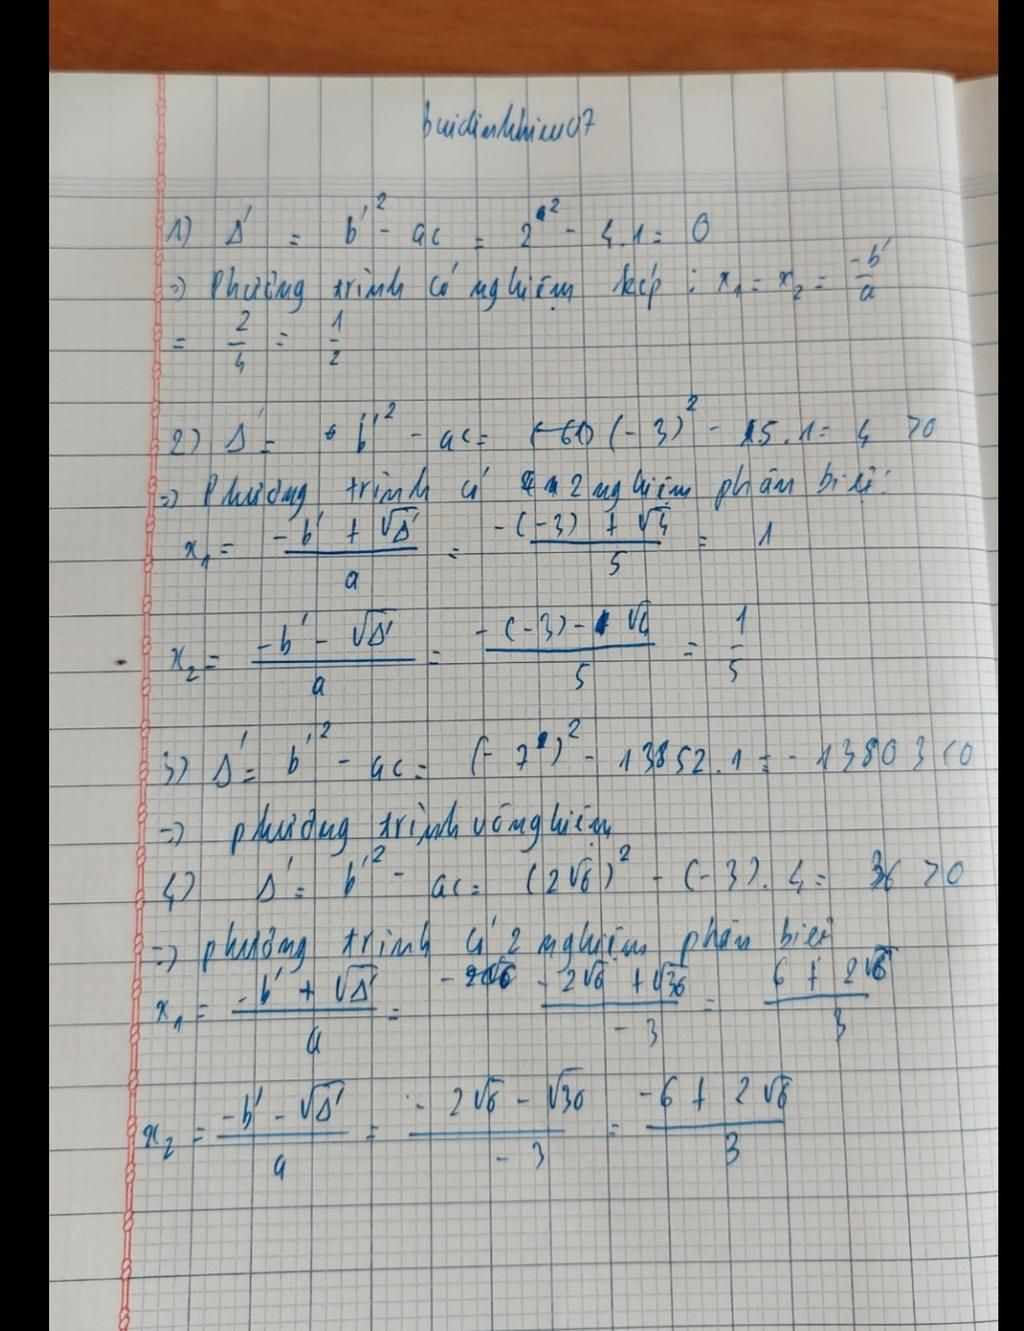 buidinhhieu07
1) Δ' = b'² - ac = 2² - 4.1 = 0
=) Phương trình có nghiệm kép : x₁ = x₂ = -b'/a
= 2/4 = 1/2
2) Δ' = b'² - ac = (-3)² - 5.1 = 4 >0
=) Phương trình có 2 nghiệm phân biệt:
x₁ = (-b' + √Δ')/a = (-(-3) + √4)/5 = 1
x₂ = (-b' - √Δ')/a = (-(-3) - √4)/5 = 1/5
3) Δ' = b'² - ac = (-7)² - 13852.1 = -13803 <0
=) phương trình vô nghiệm
4) Δ' = b'² - ac = (2√6)² - (-3).4 = 36 >0
=) phương trình có 2 nghiệm phân biệt
x₁ = (-b' + √Δ')/a = (-2√6 + √36)/-3 = (6 + 2√6)/3
x₂ = (-b' - √Δ')/a = (-2√6 - √36)/-3 = (-6 + 2√6)/3